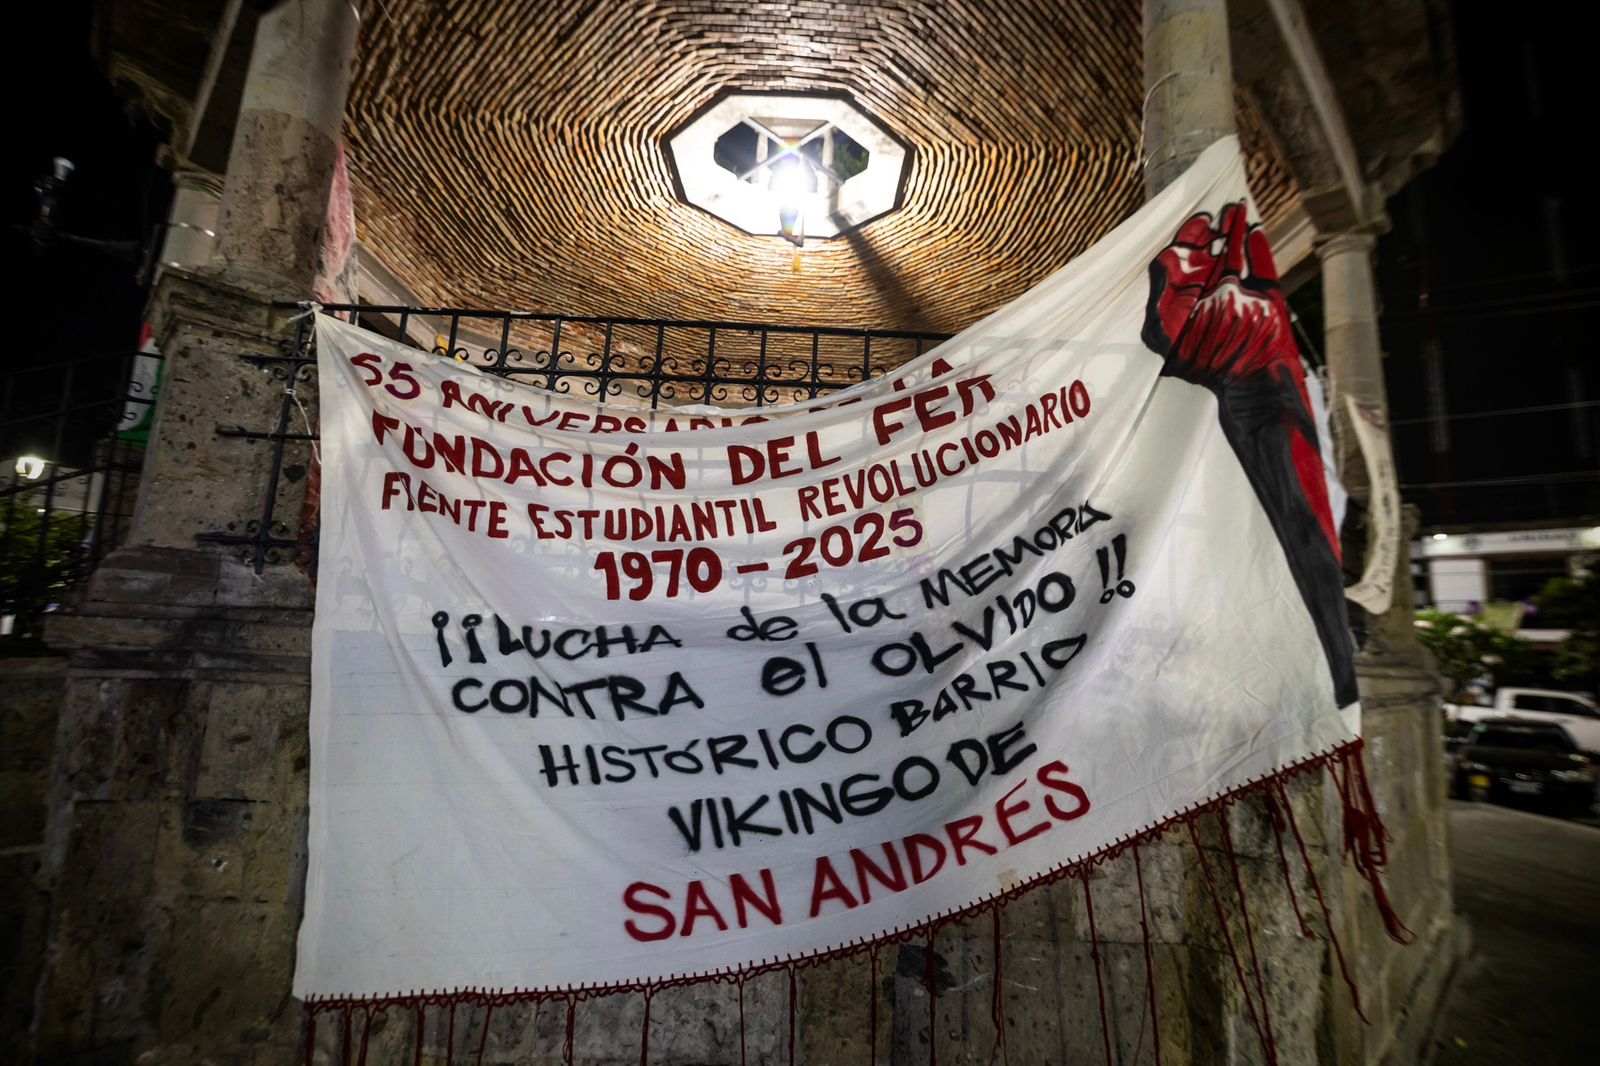 55 ANIVERSARIO DE LA
FUNDACIÓN DEL FER
FRENTE ESTUDIANTIL REVOLUCIONARIO
1970 - 2025
¡¡LUCHA de la MEMORIA
CONTRA el OLVIDO!!
HISTÓRICO BARRIO
VIKINGO DE
SAN ANDRES